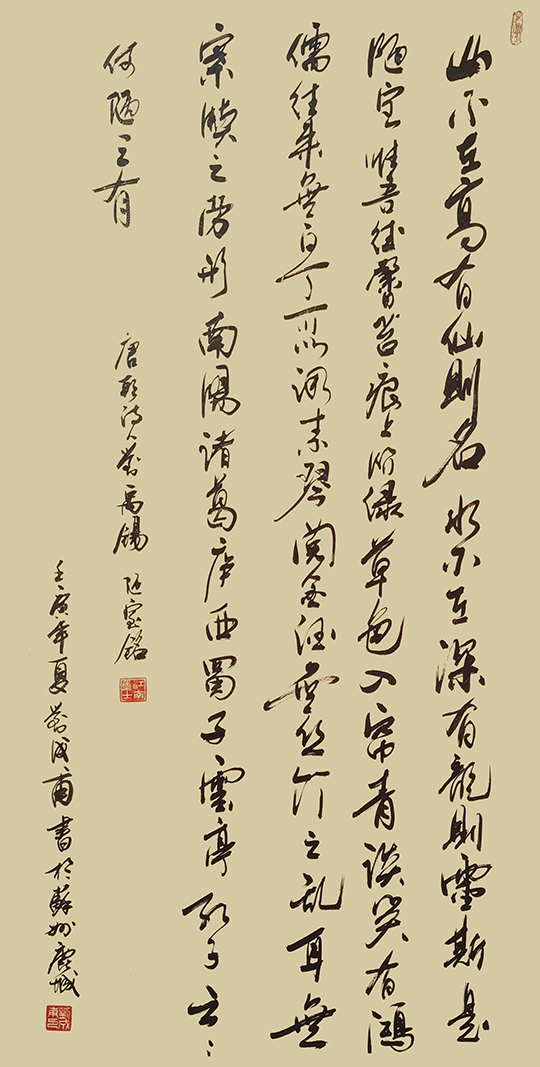 山不在高有仙則名水不在深有龍則靈斯是
陋室唯吾德馨苔痕上階緑草色入帘青談笑有鴻
儒往來無白丁可以調素琴閲金經無絲竹之乱耳無
案牘之勞形南陽諸葛廬西蜀子雲亭孔子云：
何陋之有
唐朝詩人劉禹錫 陋室銘
壬寅年夏 劉成甫書於蘇州鹿城